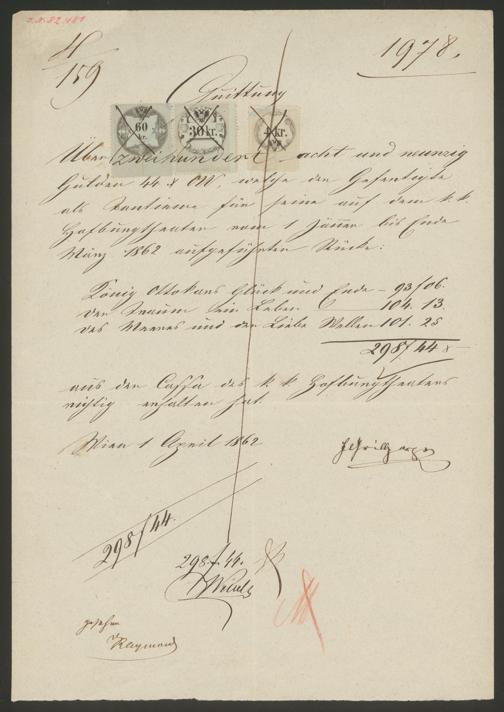 4/159
1978.
Quittung
60 kr.
30 kr.
4 kr.
Über zweihundert acht und neunzig
Gulden 44 x ÖW, welche der Gefertigte
als Tantieme für seine auf dem k. k.
Hofburgtheater vom 1 Jänner bis Ende
März 1862 aufgeführten Stücke:
König Ottokars Glück und Ende – 93/06.
Der Traum ein Leben 104. 13.
Des Meeres und der Liebe Wellen 101. 25
298/44 x
aus der Cassa des k k Hofburgtheaters
richtig erhalten hat.
Wien 1 April 1862
Grillparzer
298/44.
298 f. 44.
gesehen
Raymond